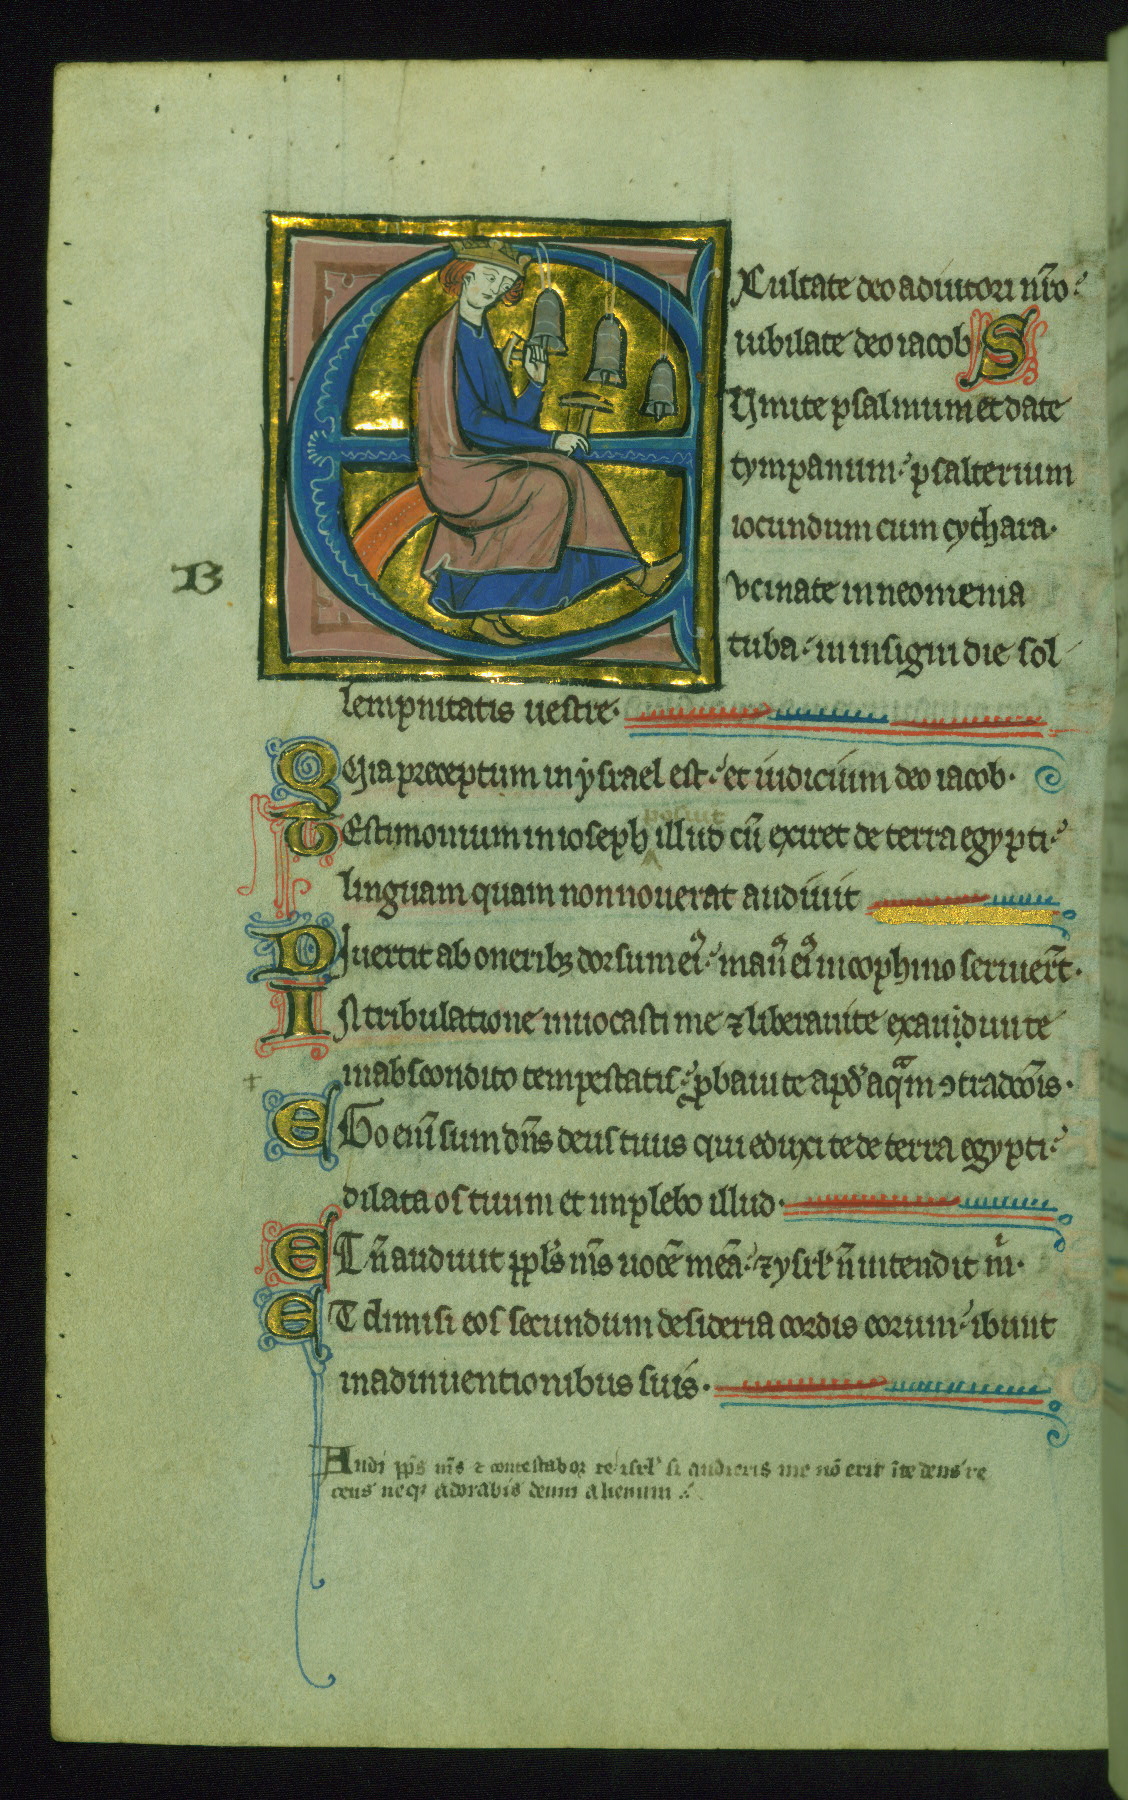 EXultate deo adiutori nr̄o
iubilate deo iacob S
Umite psalmum et date
tympanum psalterium
iocundum cum cythara
ucinate in neomenia
tuba in insigni die sol
lempnitatis uestre
B
QUia preceptum in ysrael est et iudicium deo iacob
posuit
TEstimonium in ioseph illud cū exiret de terra egypti
linguam quam non nouerat audiuit
DIuertit ab oneribꝫ dorsum eiꝰ manꝰ eiꝰ in cophino seruier̄t
IN tribulatione inuocasti me ⁊ liberaui te exaudiui te
in abscondito tempestatis ꝓbaui te apđ aq̄m ↄtradcōīs
EGo enī sum dn̄s deus tuus qui eduxi te de terra egypti
dilata os tuum et implebo illud
ET n̄ audiuit ppl̄s mīs uocē meā ⁊ ysrł n̄ intendit m̄
ET dimisi eos secundum desideria cordis eorum ibunt
in adinuentionibus suis
Audi pp̄s mīs ⁊ contestabor te isrł si audieris me nō erit ī te deus re
cens neq adorabis deum alienum